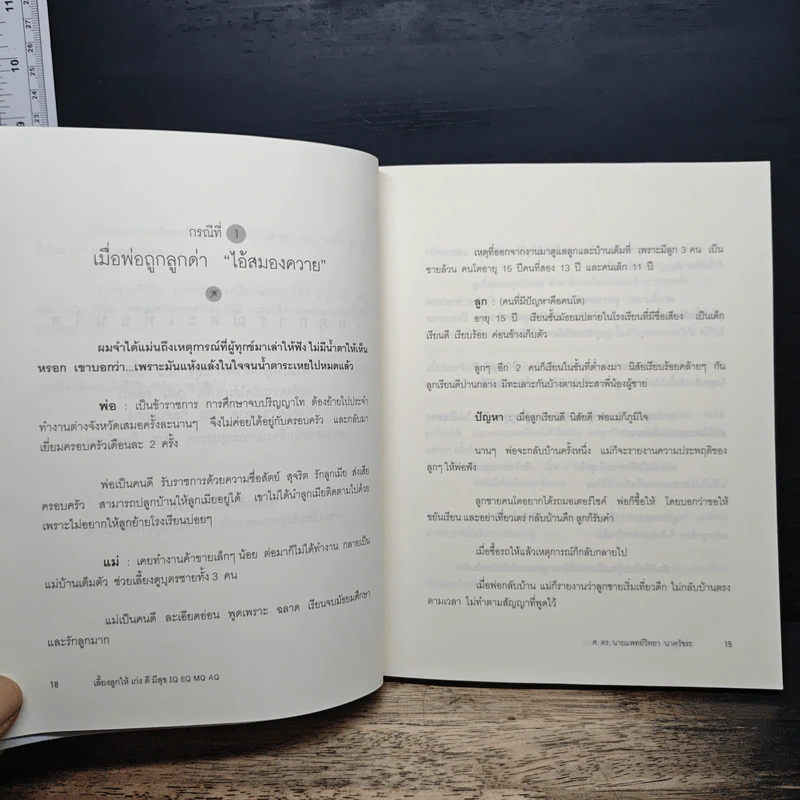 กรณีที่ 1
เมื่อพ่อถูกลูกด่า “ไอ้สมองควาย”
ผมจำได้แม่นถึงเหตุการณ์ที่ผู้ทุกข์มาเล่าให้ฟัง ไม่มีน้ำตาให้เห็น
หรอก เขาบอกว่า...เพราะมันแห้งแล้งในใจจนน้ำตาระเหยไปหมดแล้ว
พ่อ : เป็นข้าราชการ การศึกษาจบปริญญาโท ต้องย้ายไปประจำ
ทำงานต่างจังหวัดเสมอครั้งละนานๆ จึงไม่ค่อยได้อยู่กับครอบครัว และกลับมา
เยี่ยมครอบครัวเดือนละ 2 ครั้ง
พ่อเป็นคนดี รับราชการด้วยความซื่อสัตย์ สุจริต รักลูกเมีย ส่งเสีย
ครอบครัว สามารถปลูกบ้านให้ลูกเมียอยู่ได้ เขาไม่ได้นำลูกเมียติดตามไปด้วย
เพราะไม่อยากให้ลูกย้ายโรงเรียนบ่อยๆ
แม่ : เคยทำงานค้าขายเล็กๆ น้อย ต่อมาก็ไม่ได้ทำงาน กลายเป็น
แม่บ้านเต็มตัว ช่วยเลี้ยงดูบุตรชายทั้ง 3 คน
แม่เป็นคนดี ละเอียดอ่อน พูดเพราะ ฉลาด เรียนจบมัธยมศึกษา
และรักลูกมาก
18 เลี้ยงลูกให้ เก่ง ดี มีสุข IQ EQ MQ AQ
เหตุที่ออกจากงานมาดูแลลูกและบ้านเต็มที่ เพราะมีลูก 3 คน เป็น
ชายล้วน คนโตอายุ 15 ปีคนที่สอง 13 ปี และคนเล็ก 11 ปี
ลูก : (คนที่มีปัญหาคือคนโต)
อายุ 15 ปี เรียนชั้นมัธยมปลายในโรงเรียนที่มีชื่อเสียง เป็นเด็ก
เรียนดี เรียบร้อย ค่อนข้างเก็บตัว
ลูกๆ อีก 2 คนก็เรียนในชั้นที่ต่ำลงมา นิสัยเรียบร้อยคล้ายๆ กัน
ลูกเรียนดีปานกลาง มีทะเลาะกันบ้างตามประสาพี่น้องผู้ชาย
ปัญหา : เมื่อลูกเรียนดี นิสัยดี พ่อแม่ก็ภูมิใจ
นานๆ พ่อจะกลับบ้านครั้งหนึ่ง แม่ก็จะรายงานความประพฤติของ
ลูกๆ ให้พ่อฟัง
ลูกชายคนโตอยากได้รถมอเตอร์ไซค์ พ่อก็ซื้อให้ โดยบอกว่าขอให้
ขยันเรียน และอย่าเที่ยวเตร่ กลับบ้านดึก ลูกก็รับคำ
เมื่อซื้อรถให้แล้วเหตุการณ์ก็กลับกลายไป
เมื่อพ่อกลับบ้าน แม่ก็รายงานว่าลูกชายเริ่มเที่ยวดึก ไม่กลับบ้านตรง
ตามเวลา ไม่ทำตามสัญญาที่พูดไว้
ศ. ดร. นายแพทย์วิทยา นาควัชระ 19
11
10
9